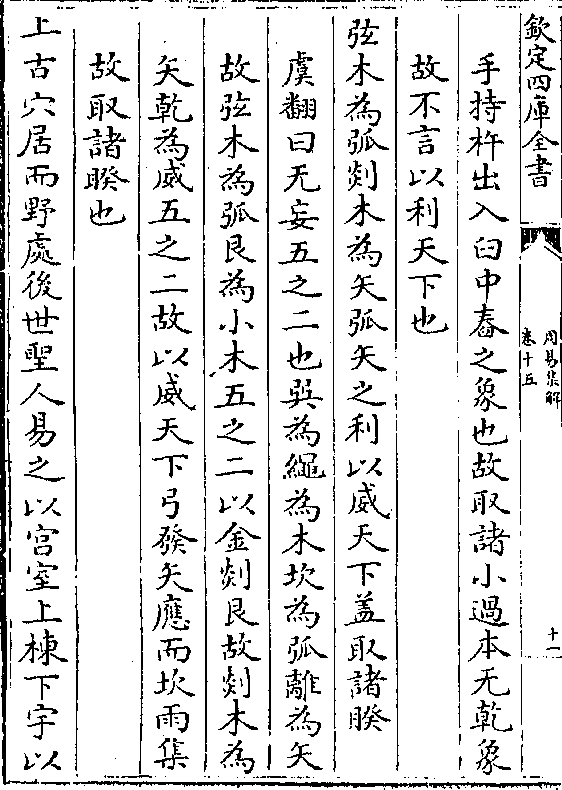 欽定四庫全書
周易集解
卷十五
十一
手持杵出入臼中舂之象也故取諸小過本无乾象
故不言以利天下也
弦木為弧剡木為矢弧矢之利以威天下盖取諸睽
虞翻曰无妄五之二也巽為繩為木坎為弧離為矢
故弦木為弧艮為小木五之二以金剡艮故剡木為
矢乾為威五之二故以威天下弓發矢應而坎雨集
故取諸睽也
上古穴居而野處後世聖人易之以宫室上棟下宇以